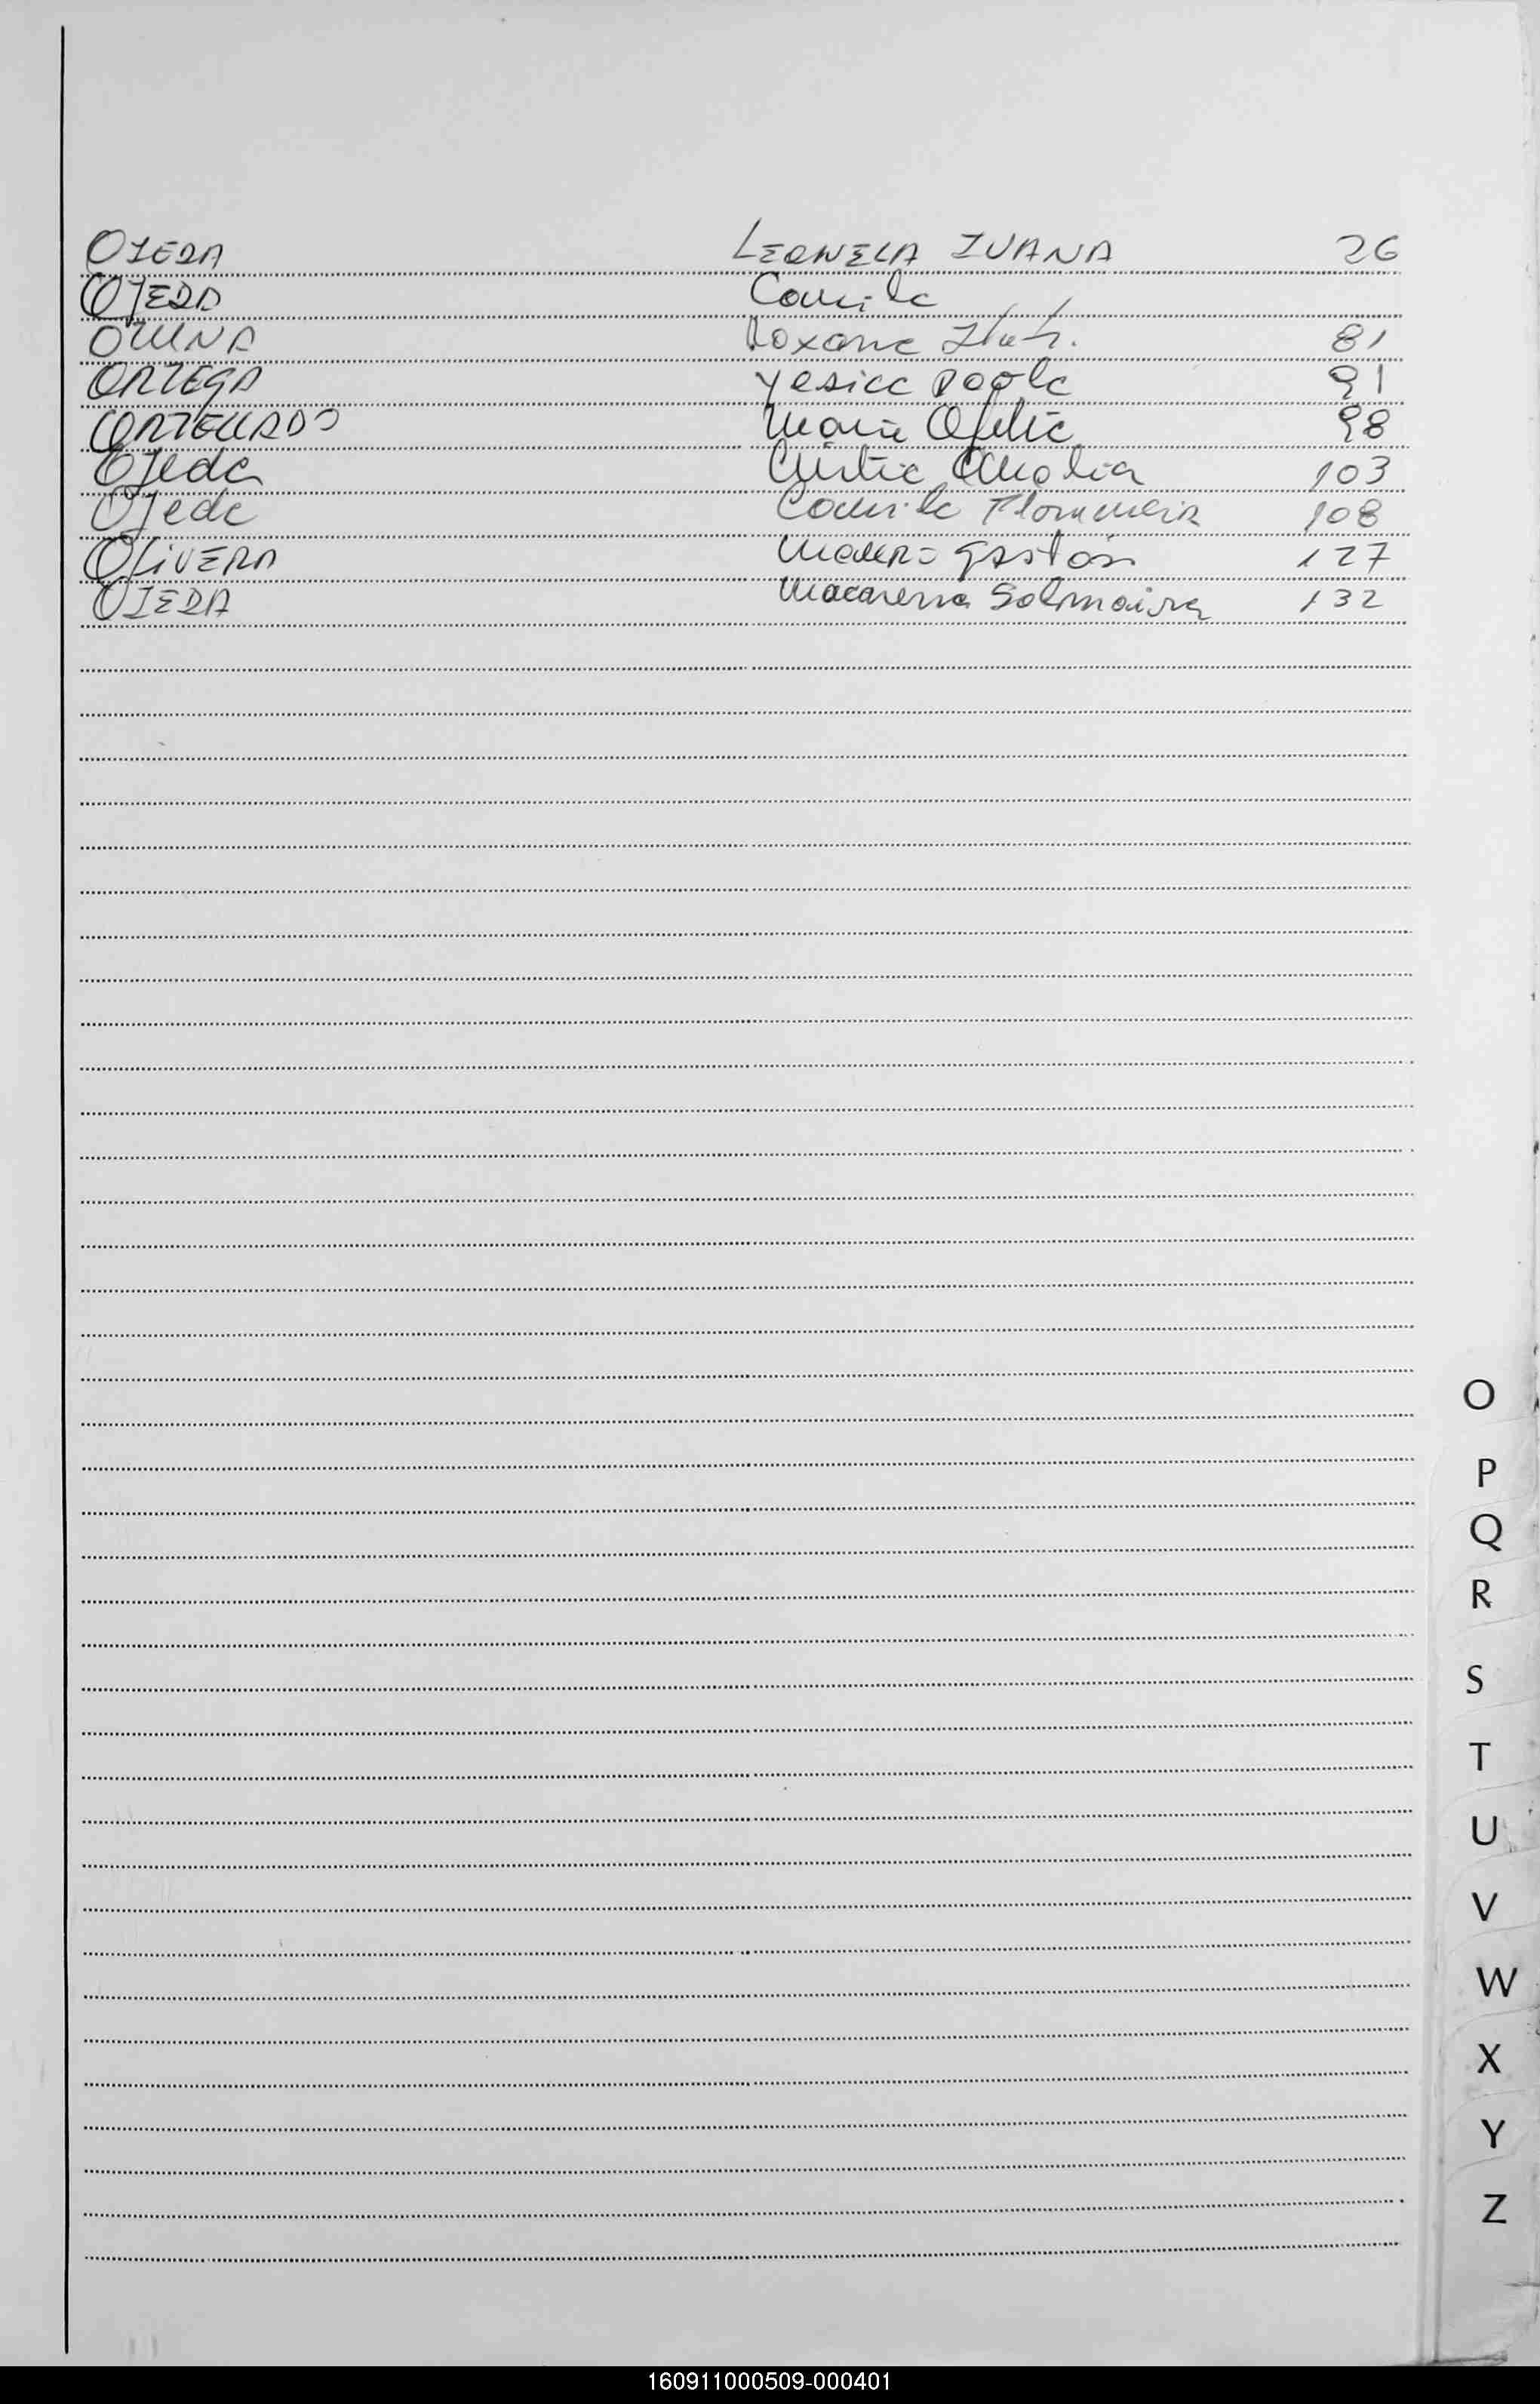 OJEDA LEONELA IVANA 26
OJEDA Camila
OVIINA Roxana 81
ORTEGA Yesica Paola 91
ORTELLADO Maria Ofelia 98
Ojeda Cintia Analia 103
Ojeda Camila Florencia 108
OLIVERA Mauro Gastón 127
OJEDA Macarena Solmaira 132
O
P
Q
R
S
T
U
V
W
X
Y
Z
160911000509-000401